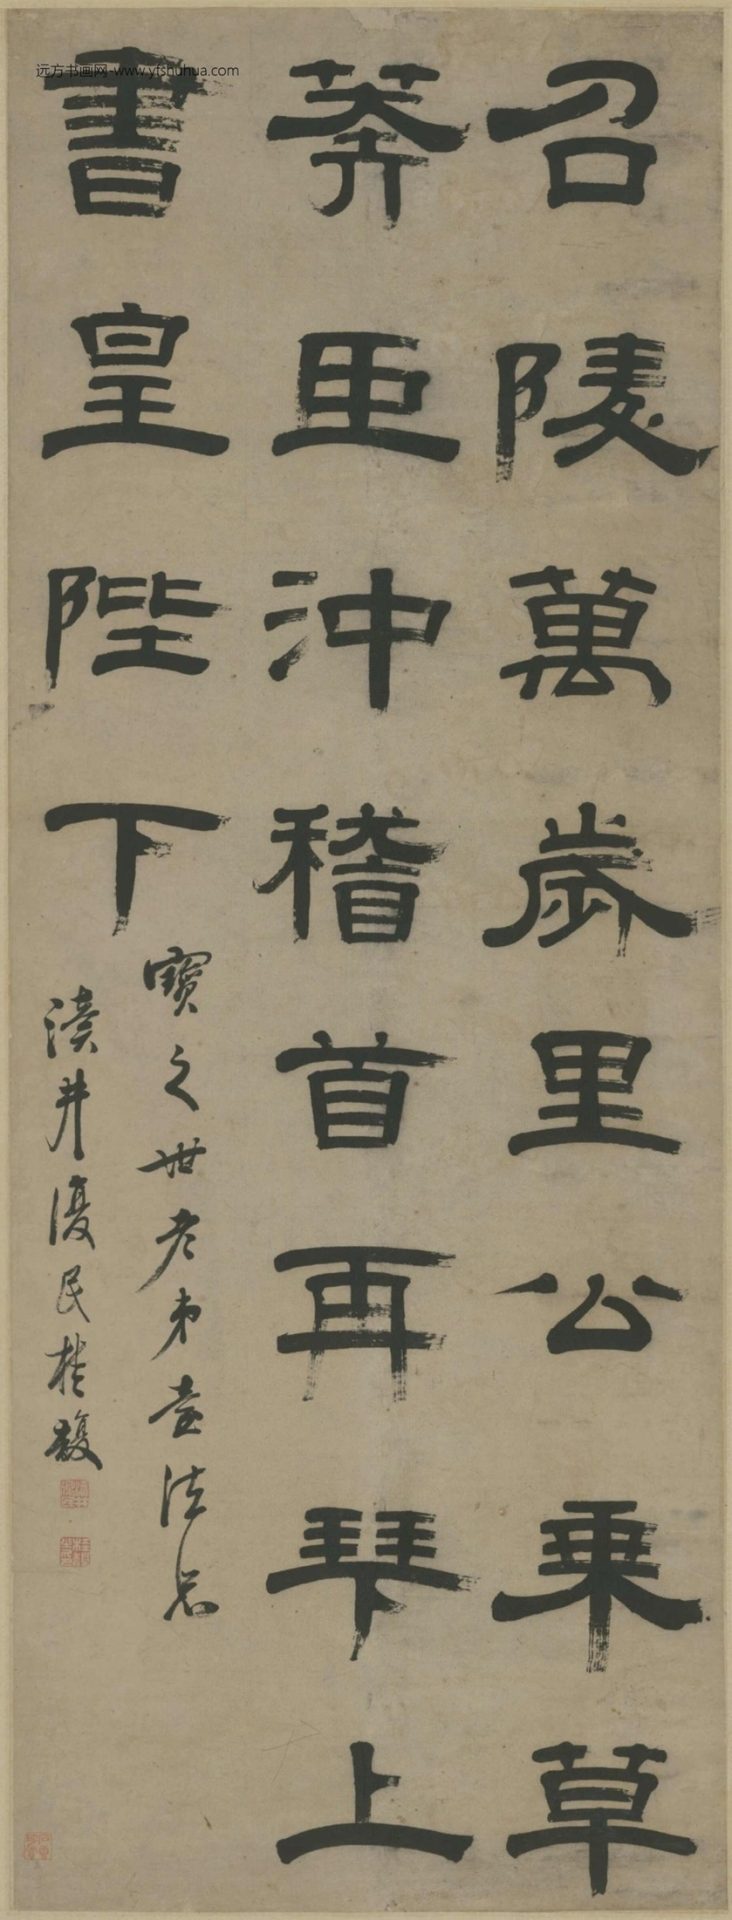 远方书画网-www.yfshuhua.com
召陵萬歲里公乘草
莽臣沖稽首再拜上
書皇陛下
寶之世老弟臺法
瀆井復民桂馥